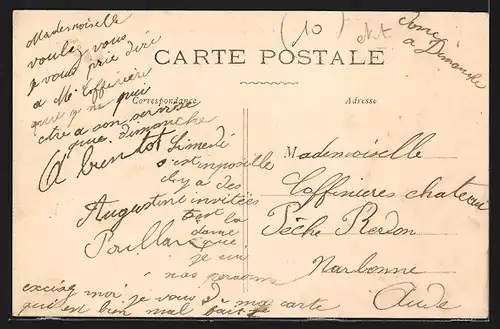 (10)
Mademoiselle
voulez vous
je vous prie dire
a Mr Coffinieres
que je ne puis
etre a son service
que dimanche
A bientot
Augustine
Donc
a Dimanche
CARTE POSTALE
Correspondance
Adresse
Samedi
s'est impossible
il y a des
invitées
est la
dame
que
je sui
nos personnes
excusez moi je vous d ma carte
qui est bien mal faite
Mademoiselle
Coffinieres chateau
Pèche Redon
Narbonne
Aude